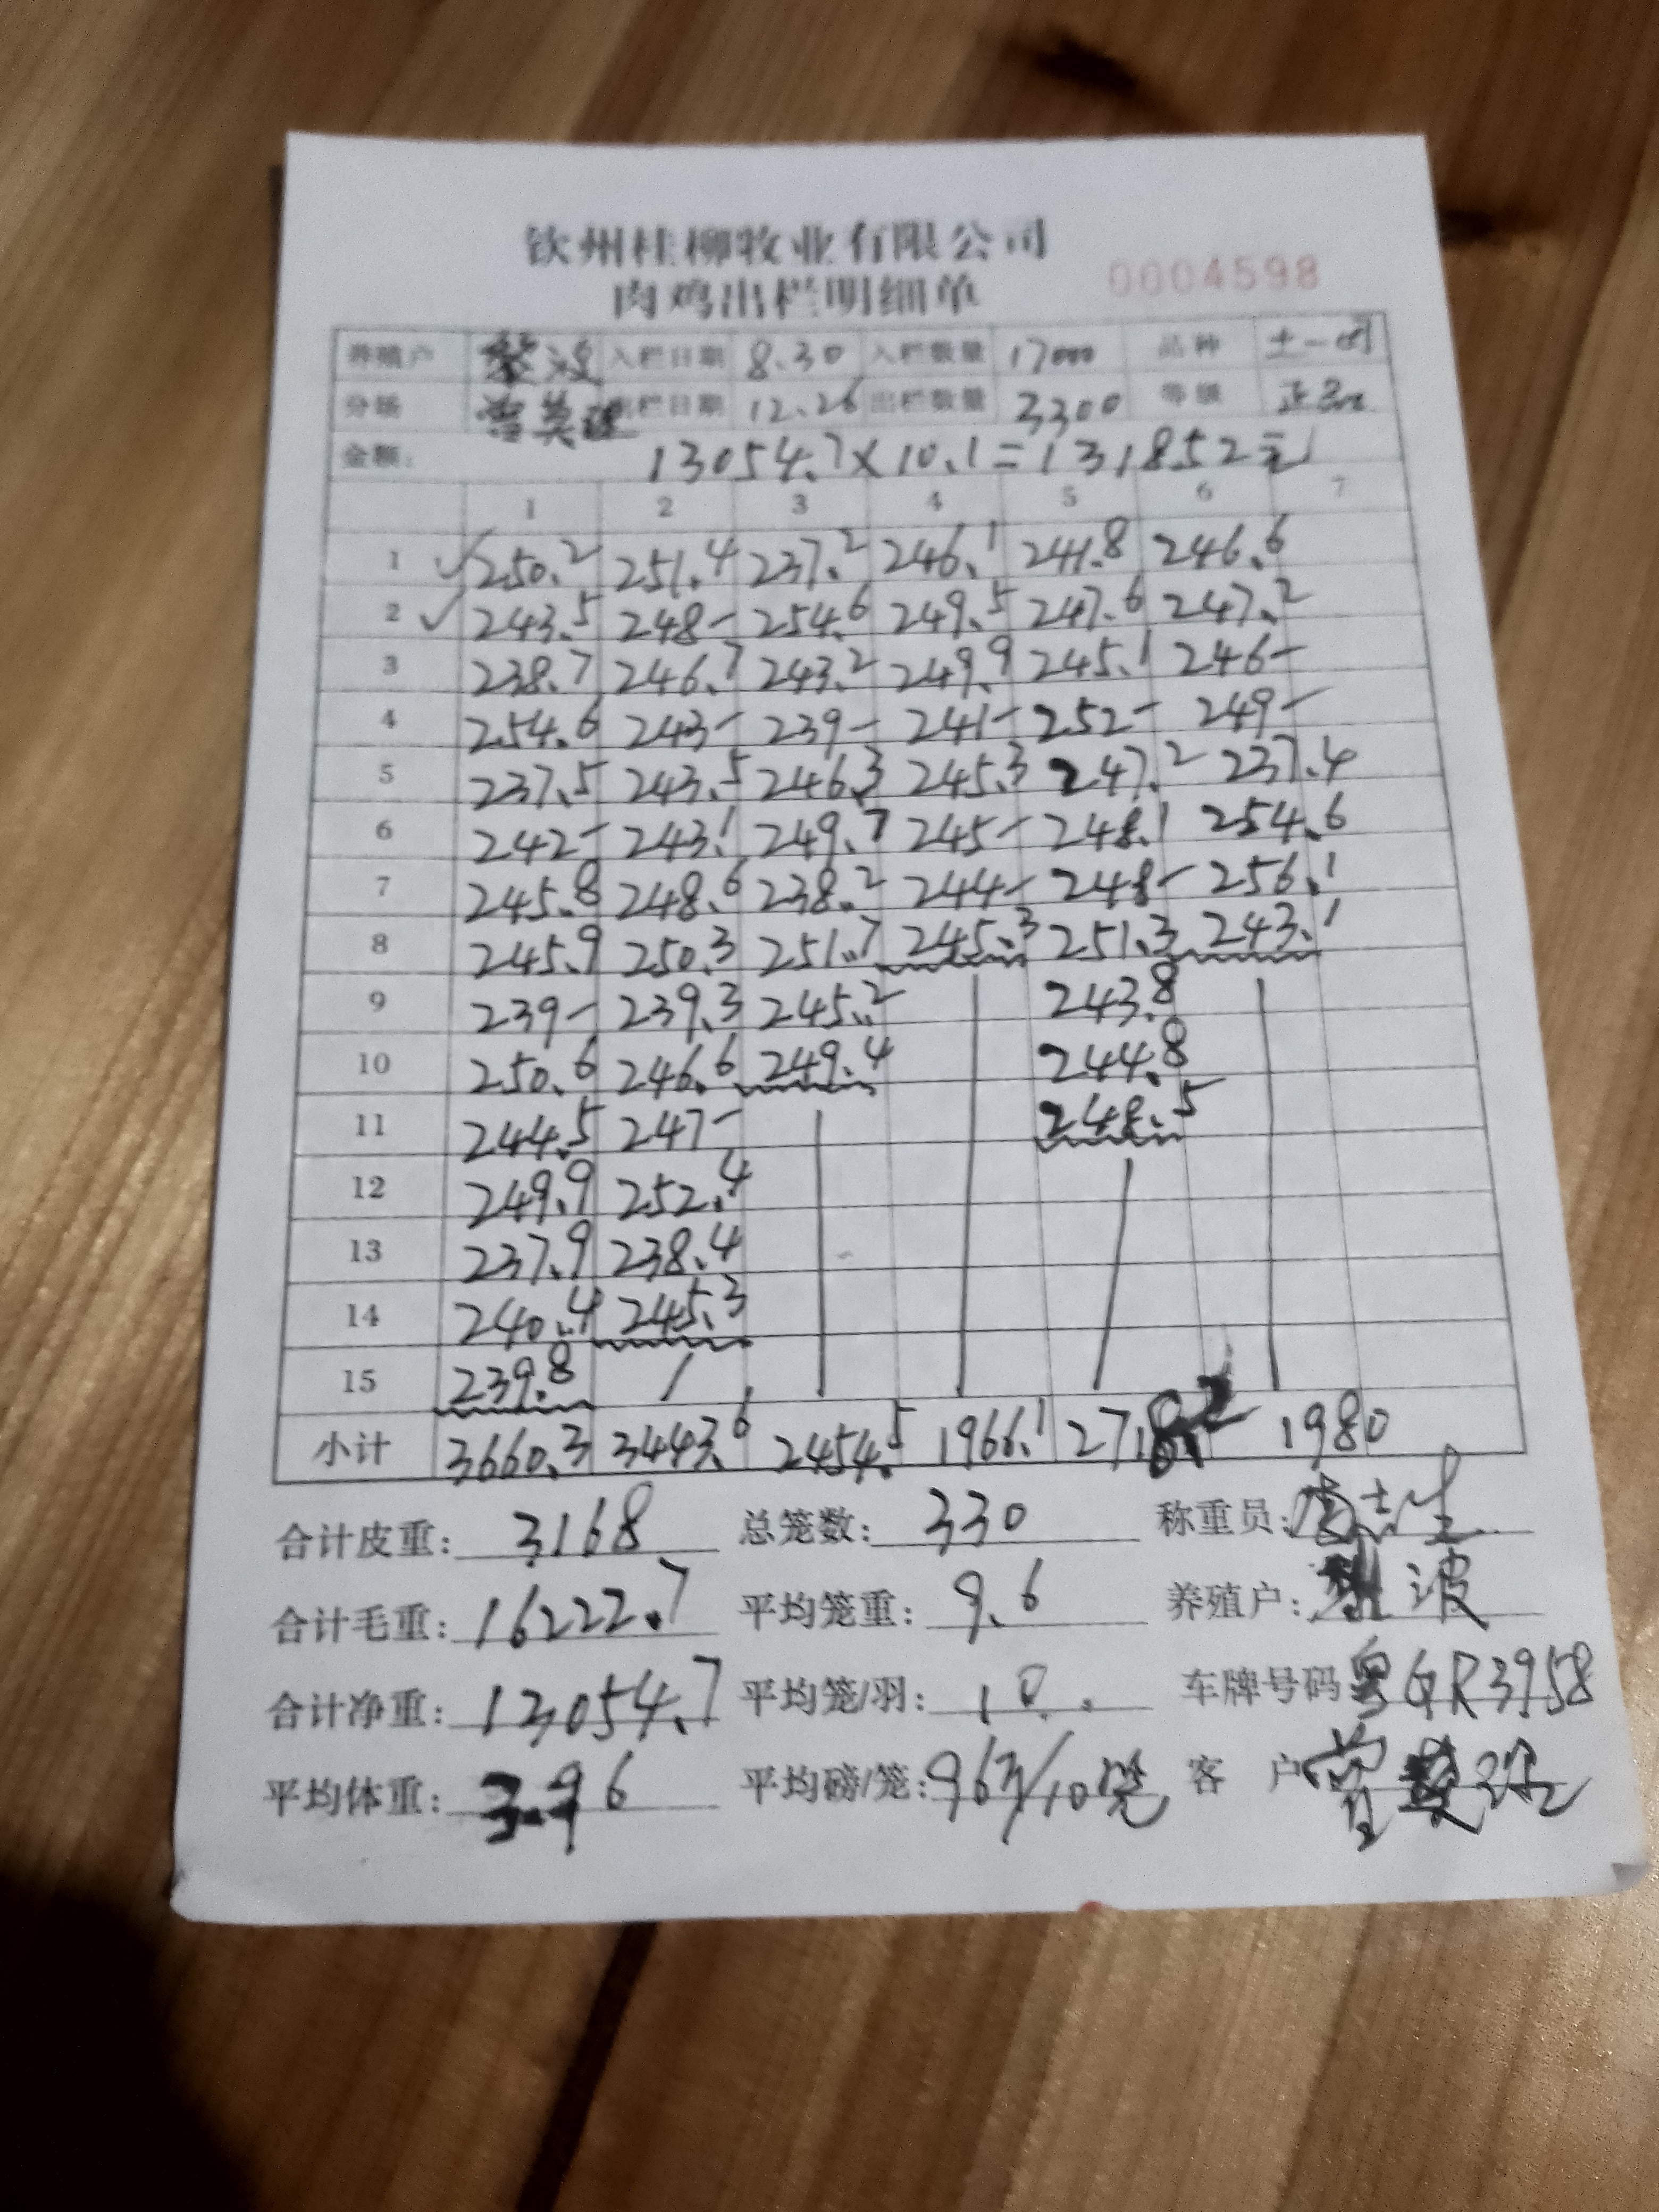 钦州桂柳牧业有限公司
肉鸡出栏明细单 0004598
养殖户 黎波 入栏日期 8.30 入栏数量 17000 品种 土一
分场 出栏日期 12.26 出栏数量 3300 等级 正品
金额: 13054.7×10.1=131852元
1 2 3 4 5 6 7
1 ✓ 250.2 251.4 237.2 246.1 241.8 246.6
2 ✓ 243.5 248- 254.6 249.5 247.6 247.2
3 238.7 246.7 243.2 249.9 245.1 246-
4 254.6 243- 239- 241- 252- 249-
5 237.5 243.5 246.3 245.3 247.2 237.4
6 242- 243.1 249.7 245- 248.1 254.6
7 245.8 248.6 238.2 244- 248- 256.1
8 245.9 250.3 251.7 245.3 251.3 243.1
9 239- 239.3 245.2 243.8
10 250.6 246.6 249.4 244.8
11 244.5 247- 248.5
12 249.9 252.4
13 237.9 238.4
14 240.4 245.3
15 239.8 /
小计 3660.3 3443.6 2454.5 1966.1 2718.2 1980
合计皮重: 3168 总笼数: 330 称重员:
合计毛重: 16222.7 平均笼重: 9.6 养殖户: 波
合计净重: 13054.7 平均笼/羽: 10. 车牌号码 粤GR3958
平均体重: 3.96 平均磅/笼: 963/10笼 客 户